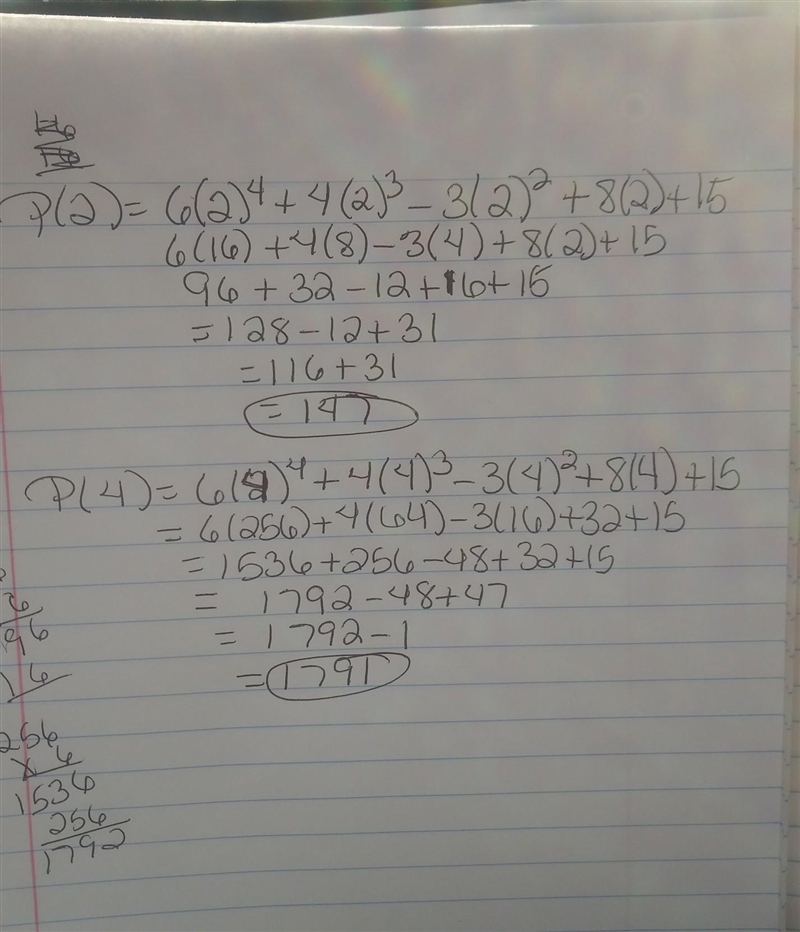 P(2) = 6(2)⁴ + 4(2)³ - 3(2)² + 8(2) + 15
6(16) + 4(8) - 3(4) + 8(2) + 15
96 + 32 - 12 + 16 + 15
= 128 - 12 + 31
= 116 + 31
= 147
P(4) = 6(4)⁴ + 4(4)³ - 3(4)² + 8(4) + 15
= 6(256) + 4(64) - 3(16) + 32 + 15
= 1536 + 256 - 48 + 32 + 15
= 1792 - 48 + 47
= 1792 - 1
= 1791
6
96
16
256
x 6
1536
256
1792